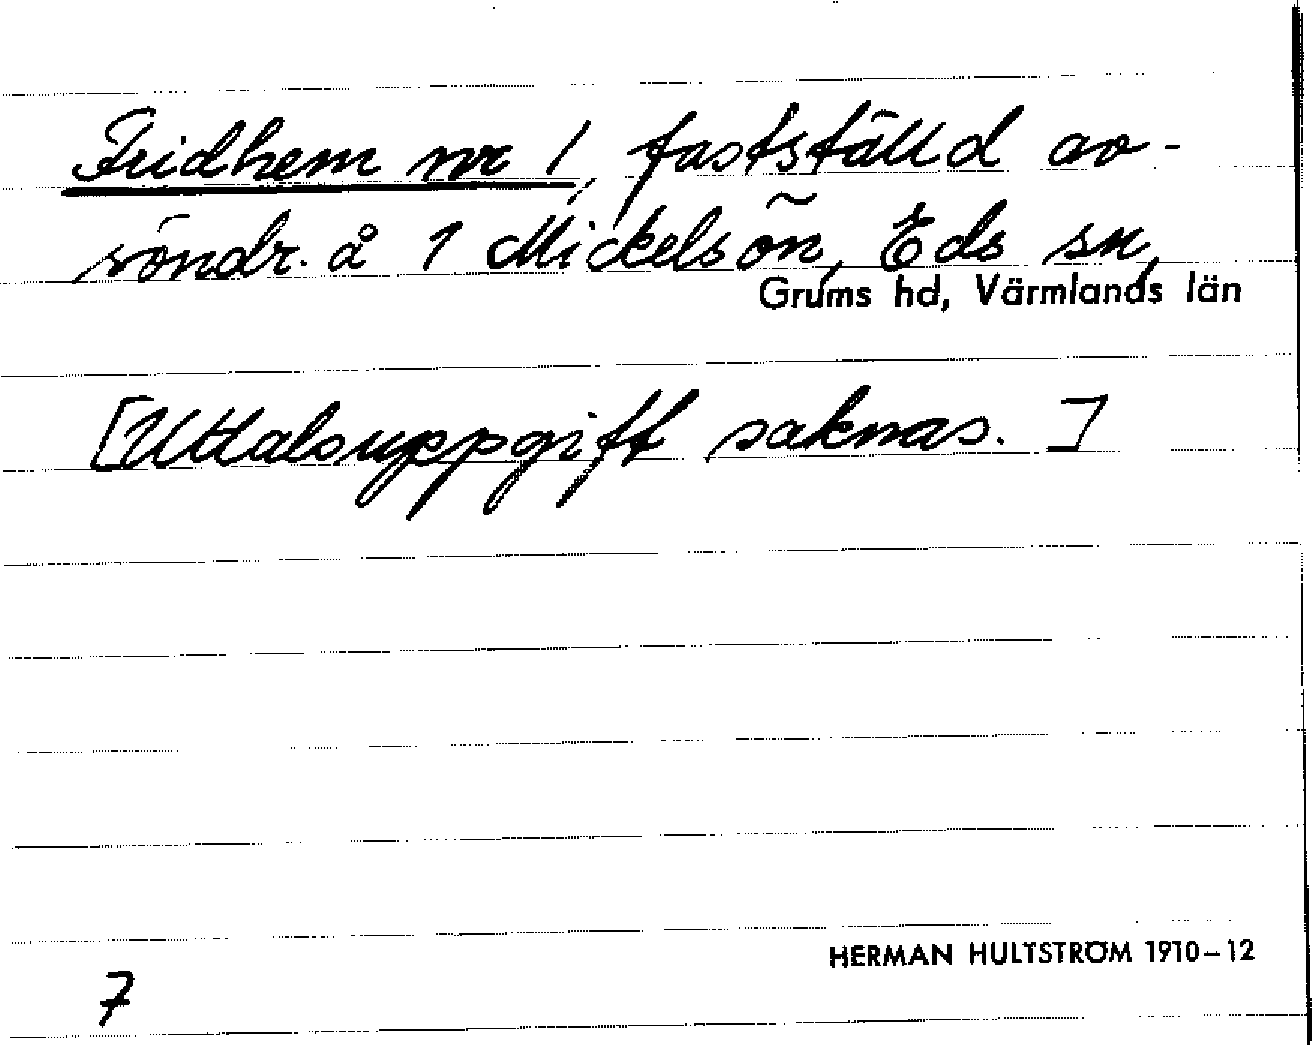 Fridhem nr 1, fastställd av-
söndr. å 1 Mickelsön, Eds sn,
Grums hd, Värmlands län
[Uttalsuppgift saknas.]
HERMAN HULTSTRÖM 1910–12
7